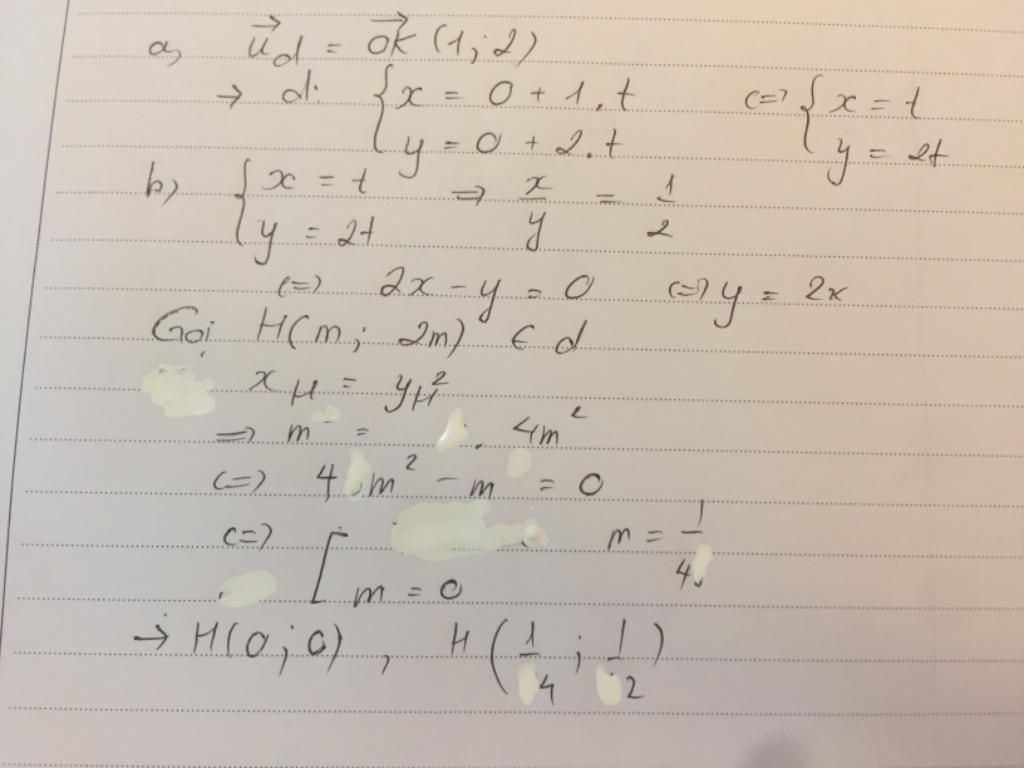 a, u⃗d = OK⃗ (1; 2)
→ d: { x = 0 + 1.t <=> { x = t
y = 0 + 2.t y = 2t
b) { x = t => x/y = 1/2
y = 2t
<=> 2x - y = 0 <=> y = 2x
Gọi H(m; 2m) ∈ d
xH = yH²
=> m = . 4m²
<=> 4m² - m = 0
<=> [ m = 1/4
m = 0
→ H(0; 0), H(1/4; 1/2)